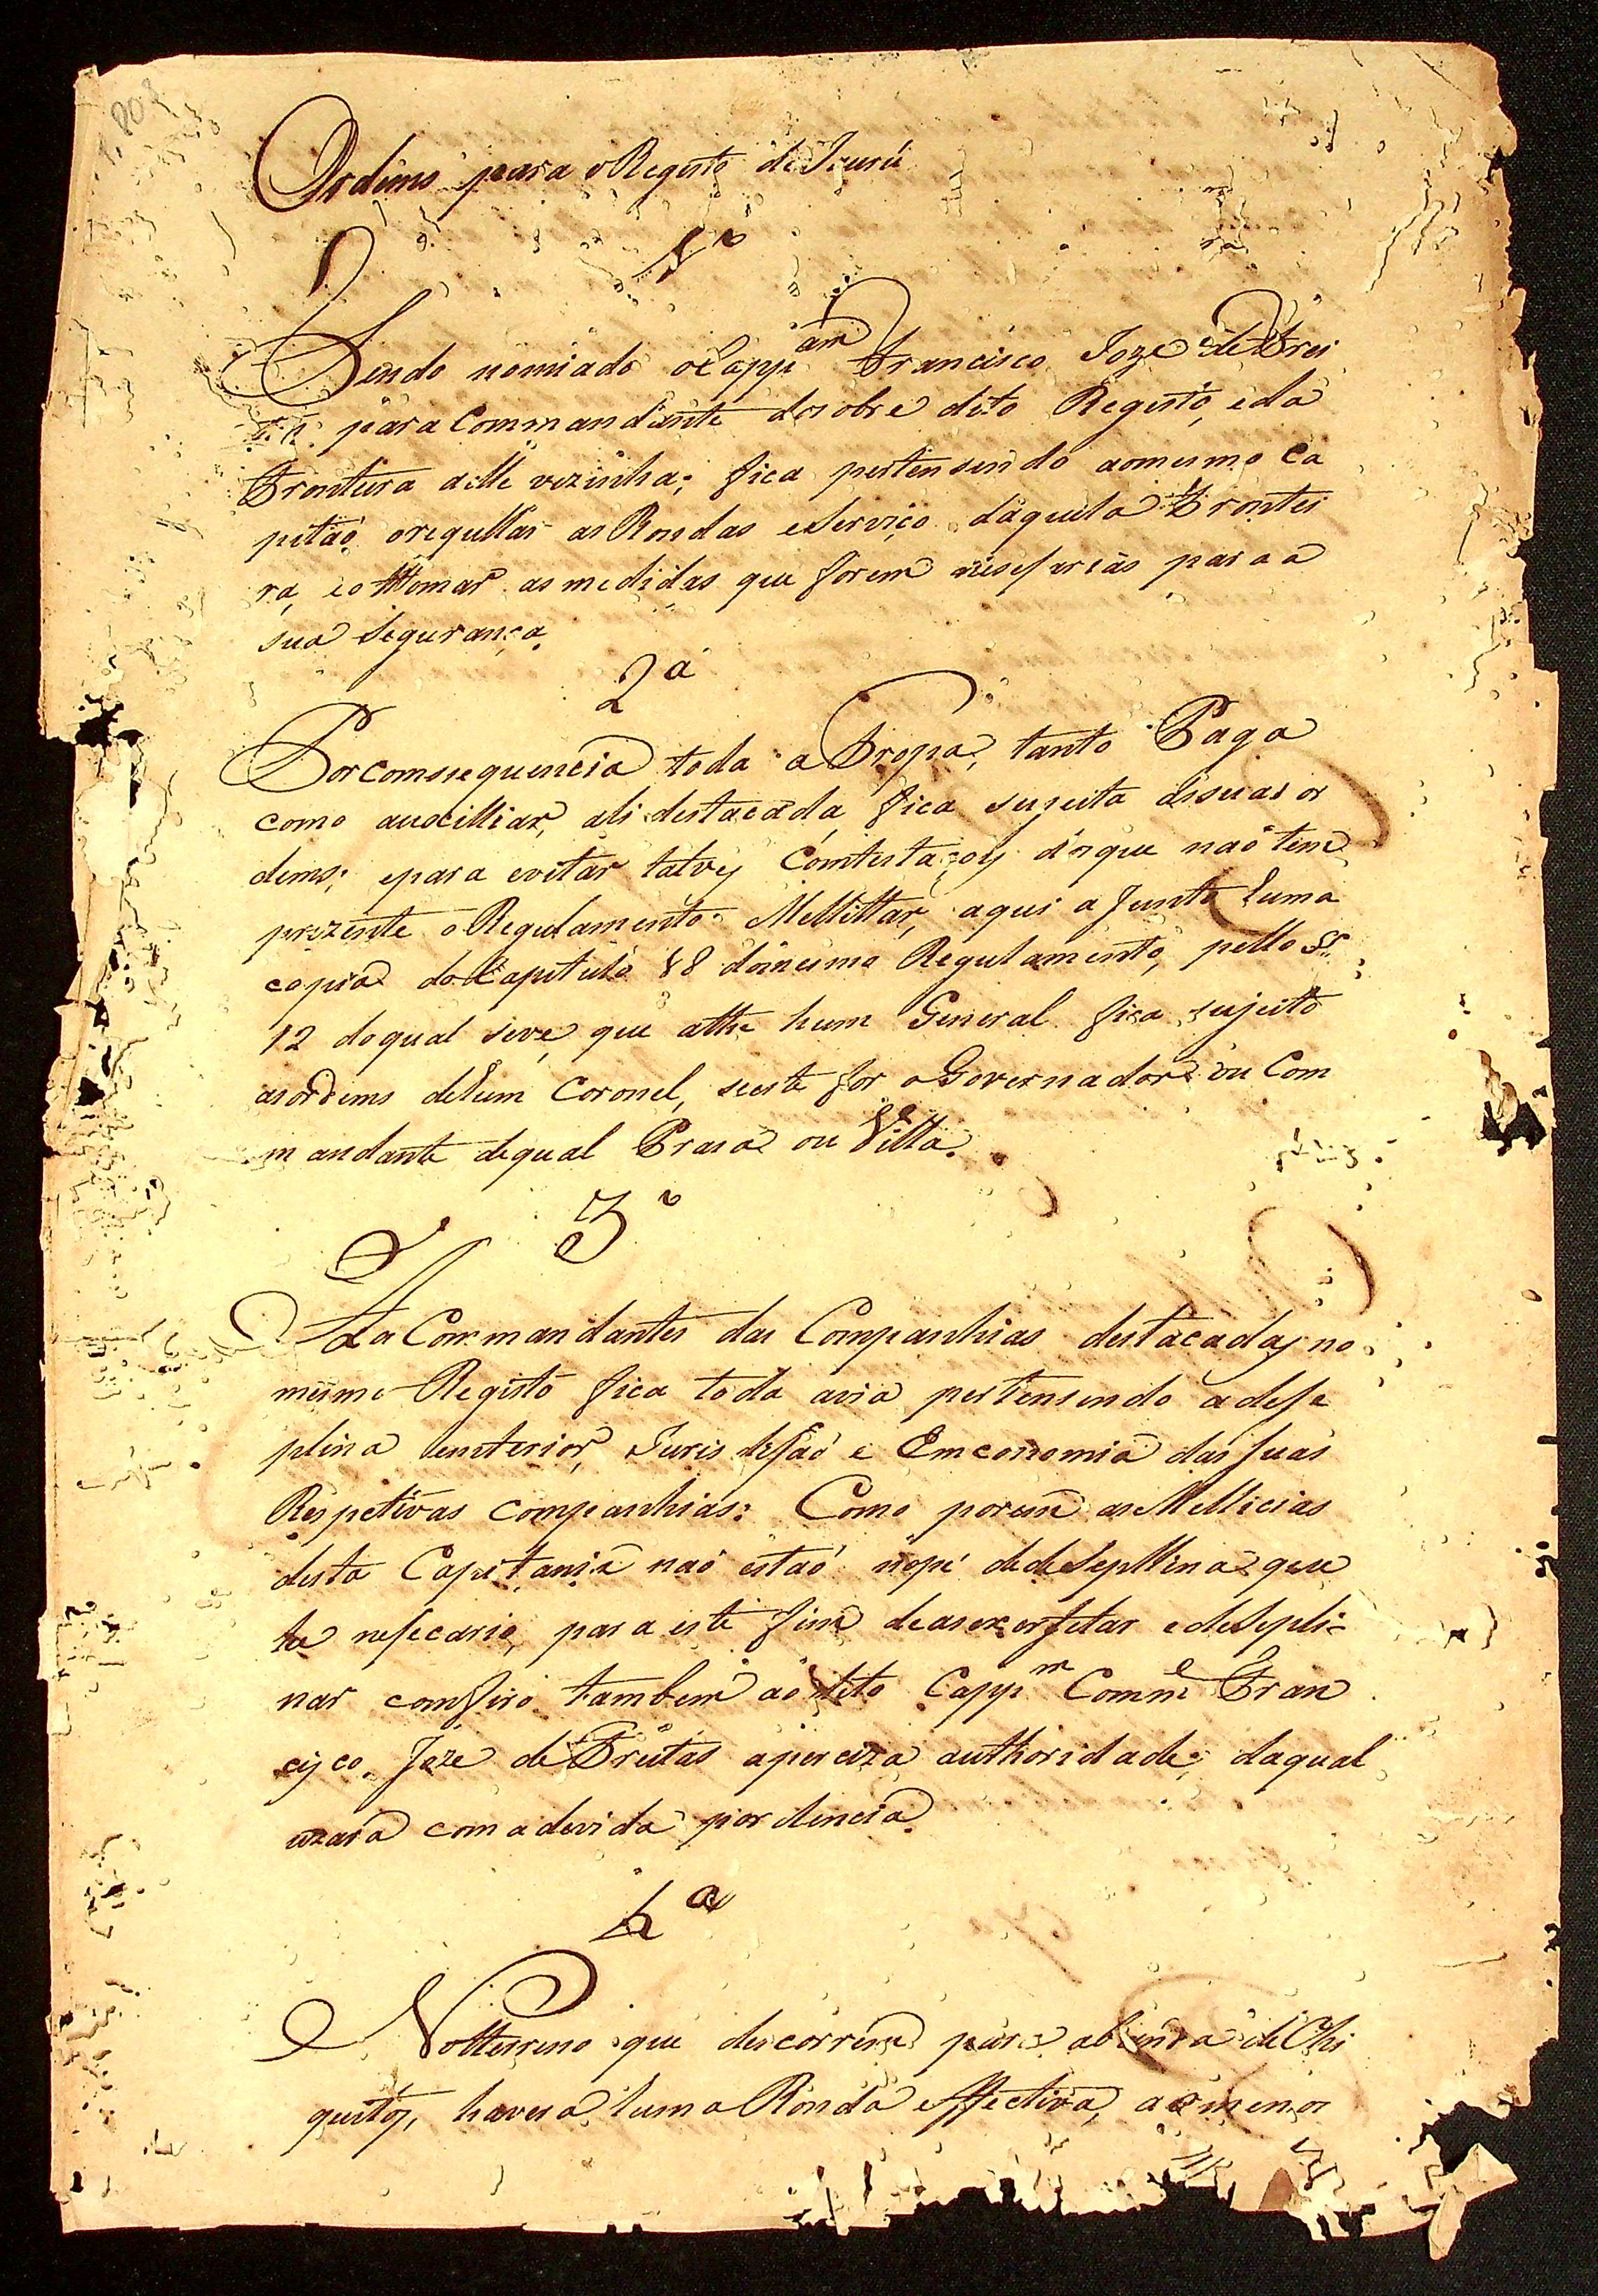 1,808
Ordems para o Registo de Jaurú
1ª
Sendo nomiado o Cappᵃᵐ Francisco Joze de Frei
para Commandante do sobre dito Registo, e da
Fronteira a elle vezinha; fica pertensendo ao mesmo Ca
pitaõ, o regullar as Rondas e Serviço daquela Frontei
ra, e o ttomar as medidas que forem nesesarias para a
sua Segurança.
2ª
Por comsequencia toda a Tropa, tanto Paga
como auxilliar, ali destacada, fica sujeita ás suas or
dems; e para evitar talvez Contestaçoiz dos que naõ tem
prezente o Regulamento Mellittar, aqui a junto huma
copia do Capitulo 18 do mesmo Regulamento, pello §º
12 do qual se ve, que athe hum General fica sujeito
as ordems de hum Coronel, se este for o Governador ou Com
mandante de qual Prasa ou Villa.
3ª
Aos Commandantes das Companhias destacadas no
mesmo Registo fica toda avia pertensendo a dese
plina Emterior, Juris desaõ e Emconomia das suas
Respetivas companhias: Como porem as Mellicias
desta Capitania naõ estaõ no pé de deseplina que
he nesecario, para este fim de as exersetar e desepli-
nar comfiro tambem ao dito Cappᵐ Commᵉ Fran
cisco Joze de Freitas a perciza authoridade; da qual
uzará com a devida pordencia.
4ª
No tterreno que descorrem para a banda de Chi
quitos, havera huma Ronda effectiva, ao menos